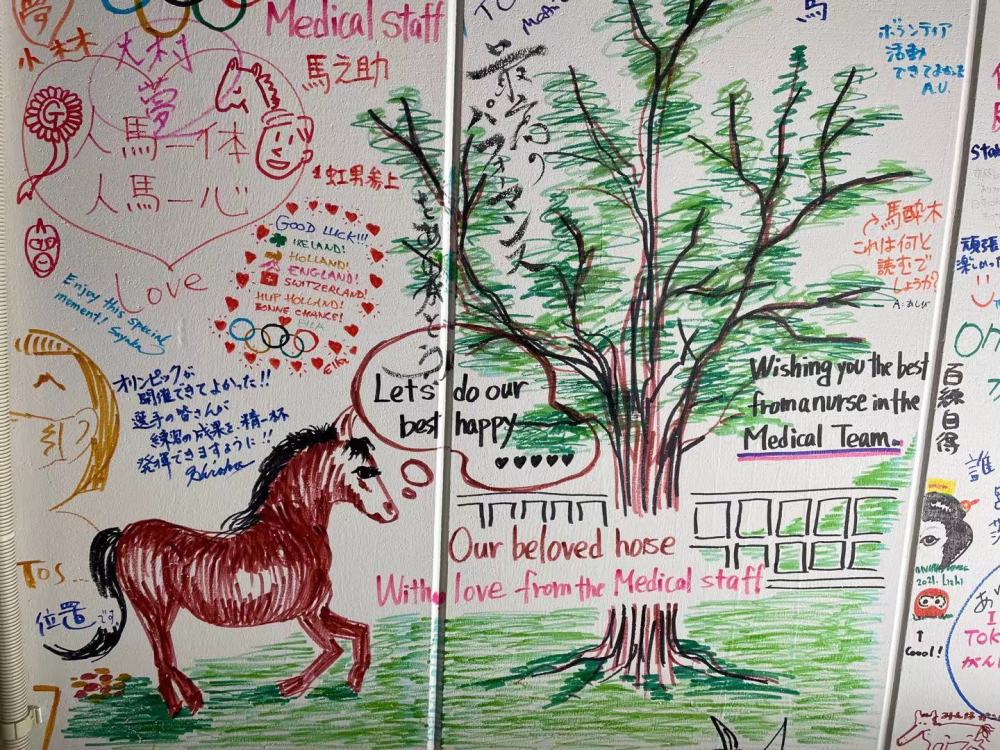 夢
小林
大村
夢
人馬一体
人馬一心
Love
G
Medical staff
馬之助
虹男参上
GOOD LUCK!!!
IRELAND!
HOLLAND!
ENGLAND!
SWITZERLAND!
HUP HOLLAND!
BONNE CHANCE!
Enjoy this special
moment! Sayaka
オリンピックが
開催できてよかった!!
選手の皆さんが
練習の成果を精一杯
発揮できますように!!
最高の
パフォーマンス
ありがとう
馬
ボランティア
活動
できてよかった
A.U.
馬酔木
これは何と
読むで
しょうか?
A:あしび
Lets' do our
best happy
Wishing you the best
from a nurse in the
Medical Team.
Our beloved horse
With love from the Medical staff
TOS...
位置です
百練自得
2021.
↑
Cool!
頑張
楽しかった
誰
I
TOK
がん